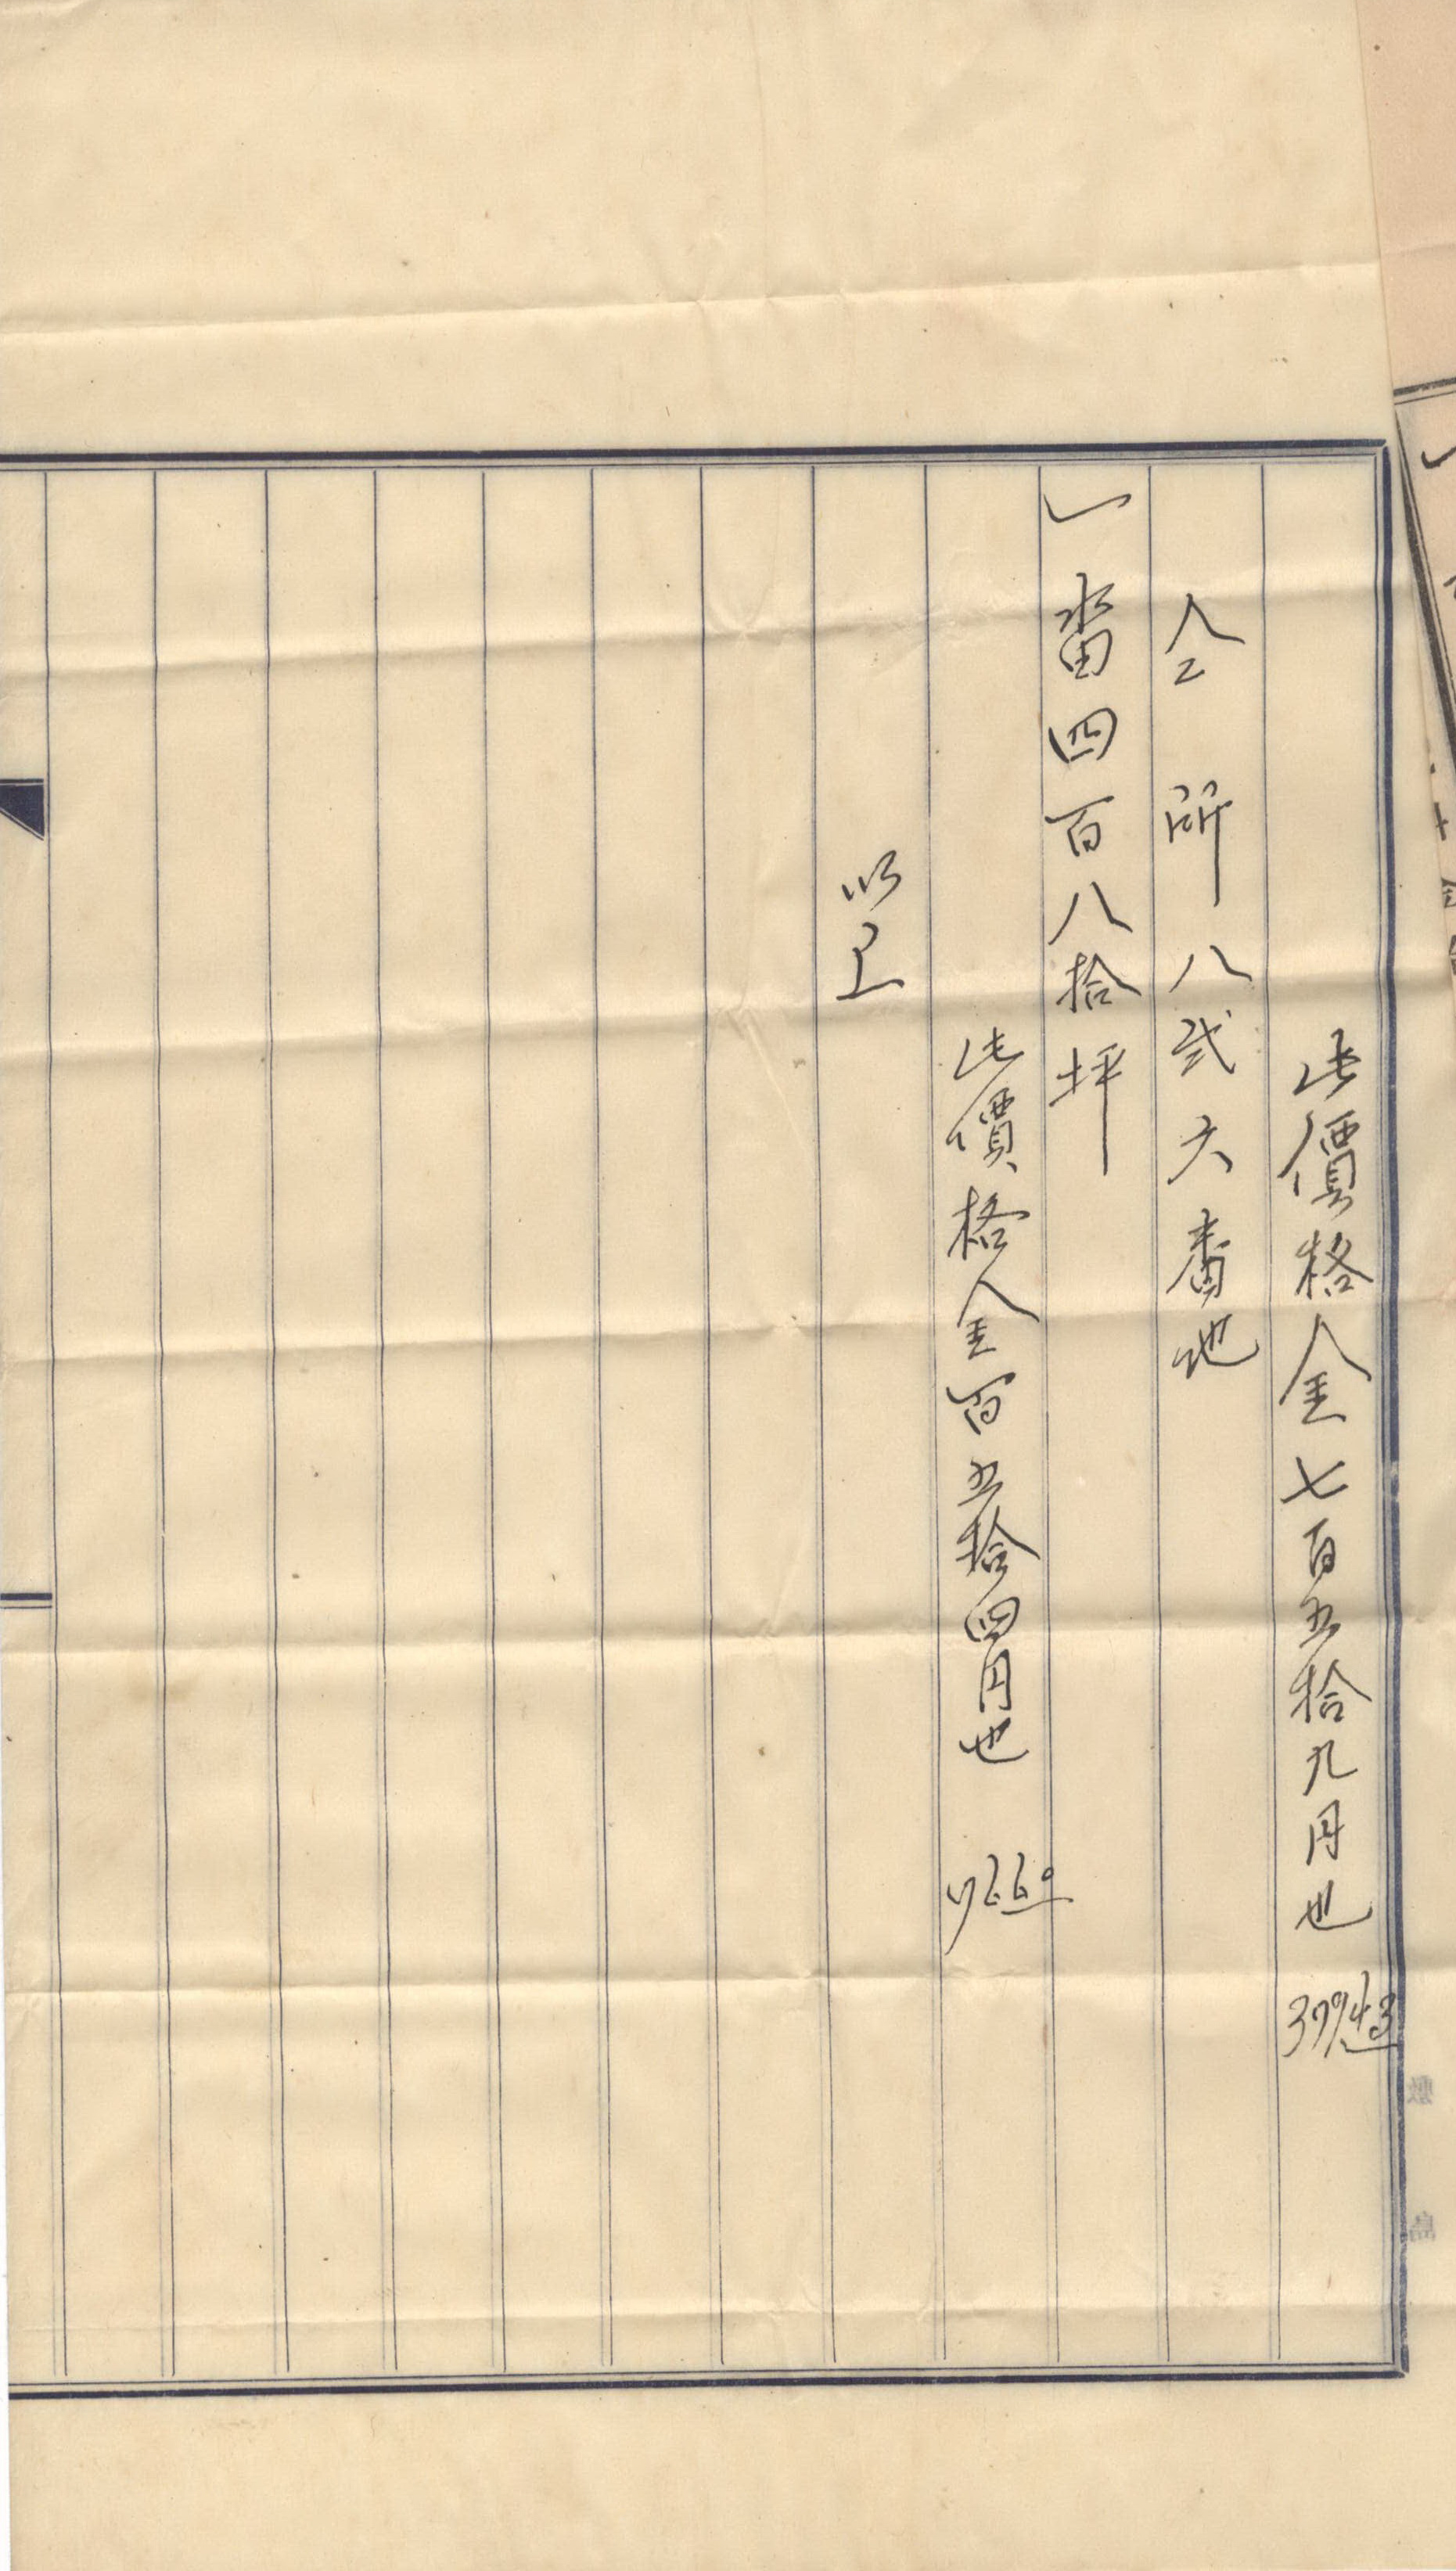 此價格金七百五拾九円也 37943
仝所八弐六番地
一畓四百八拾坪
此價格金百五拾四円也
以上